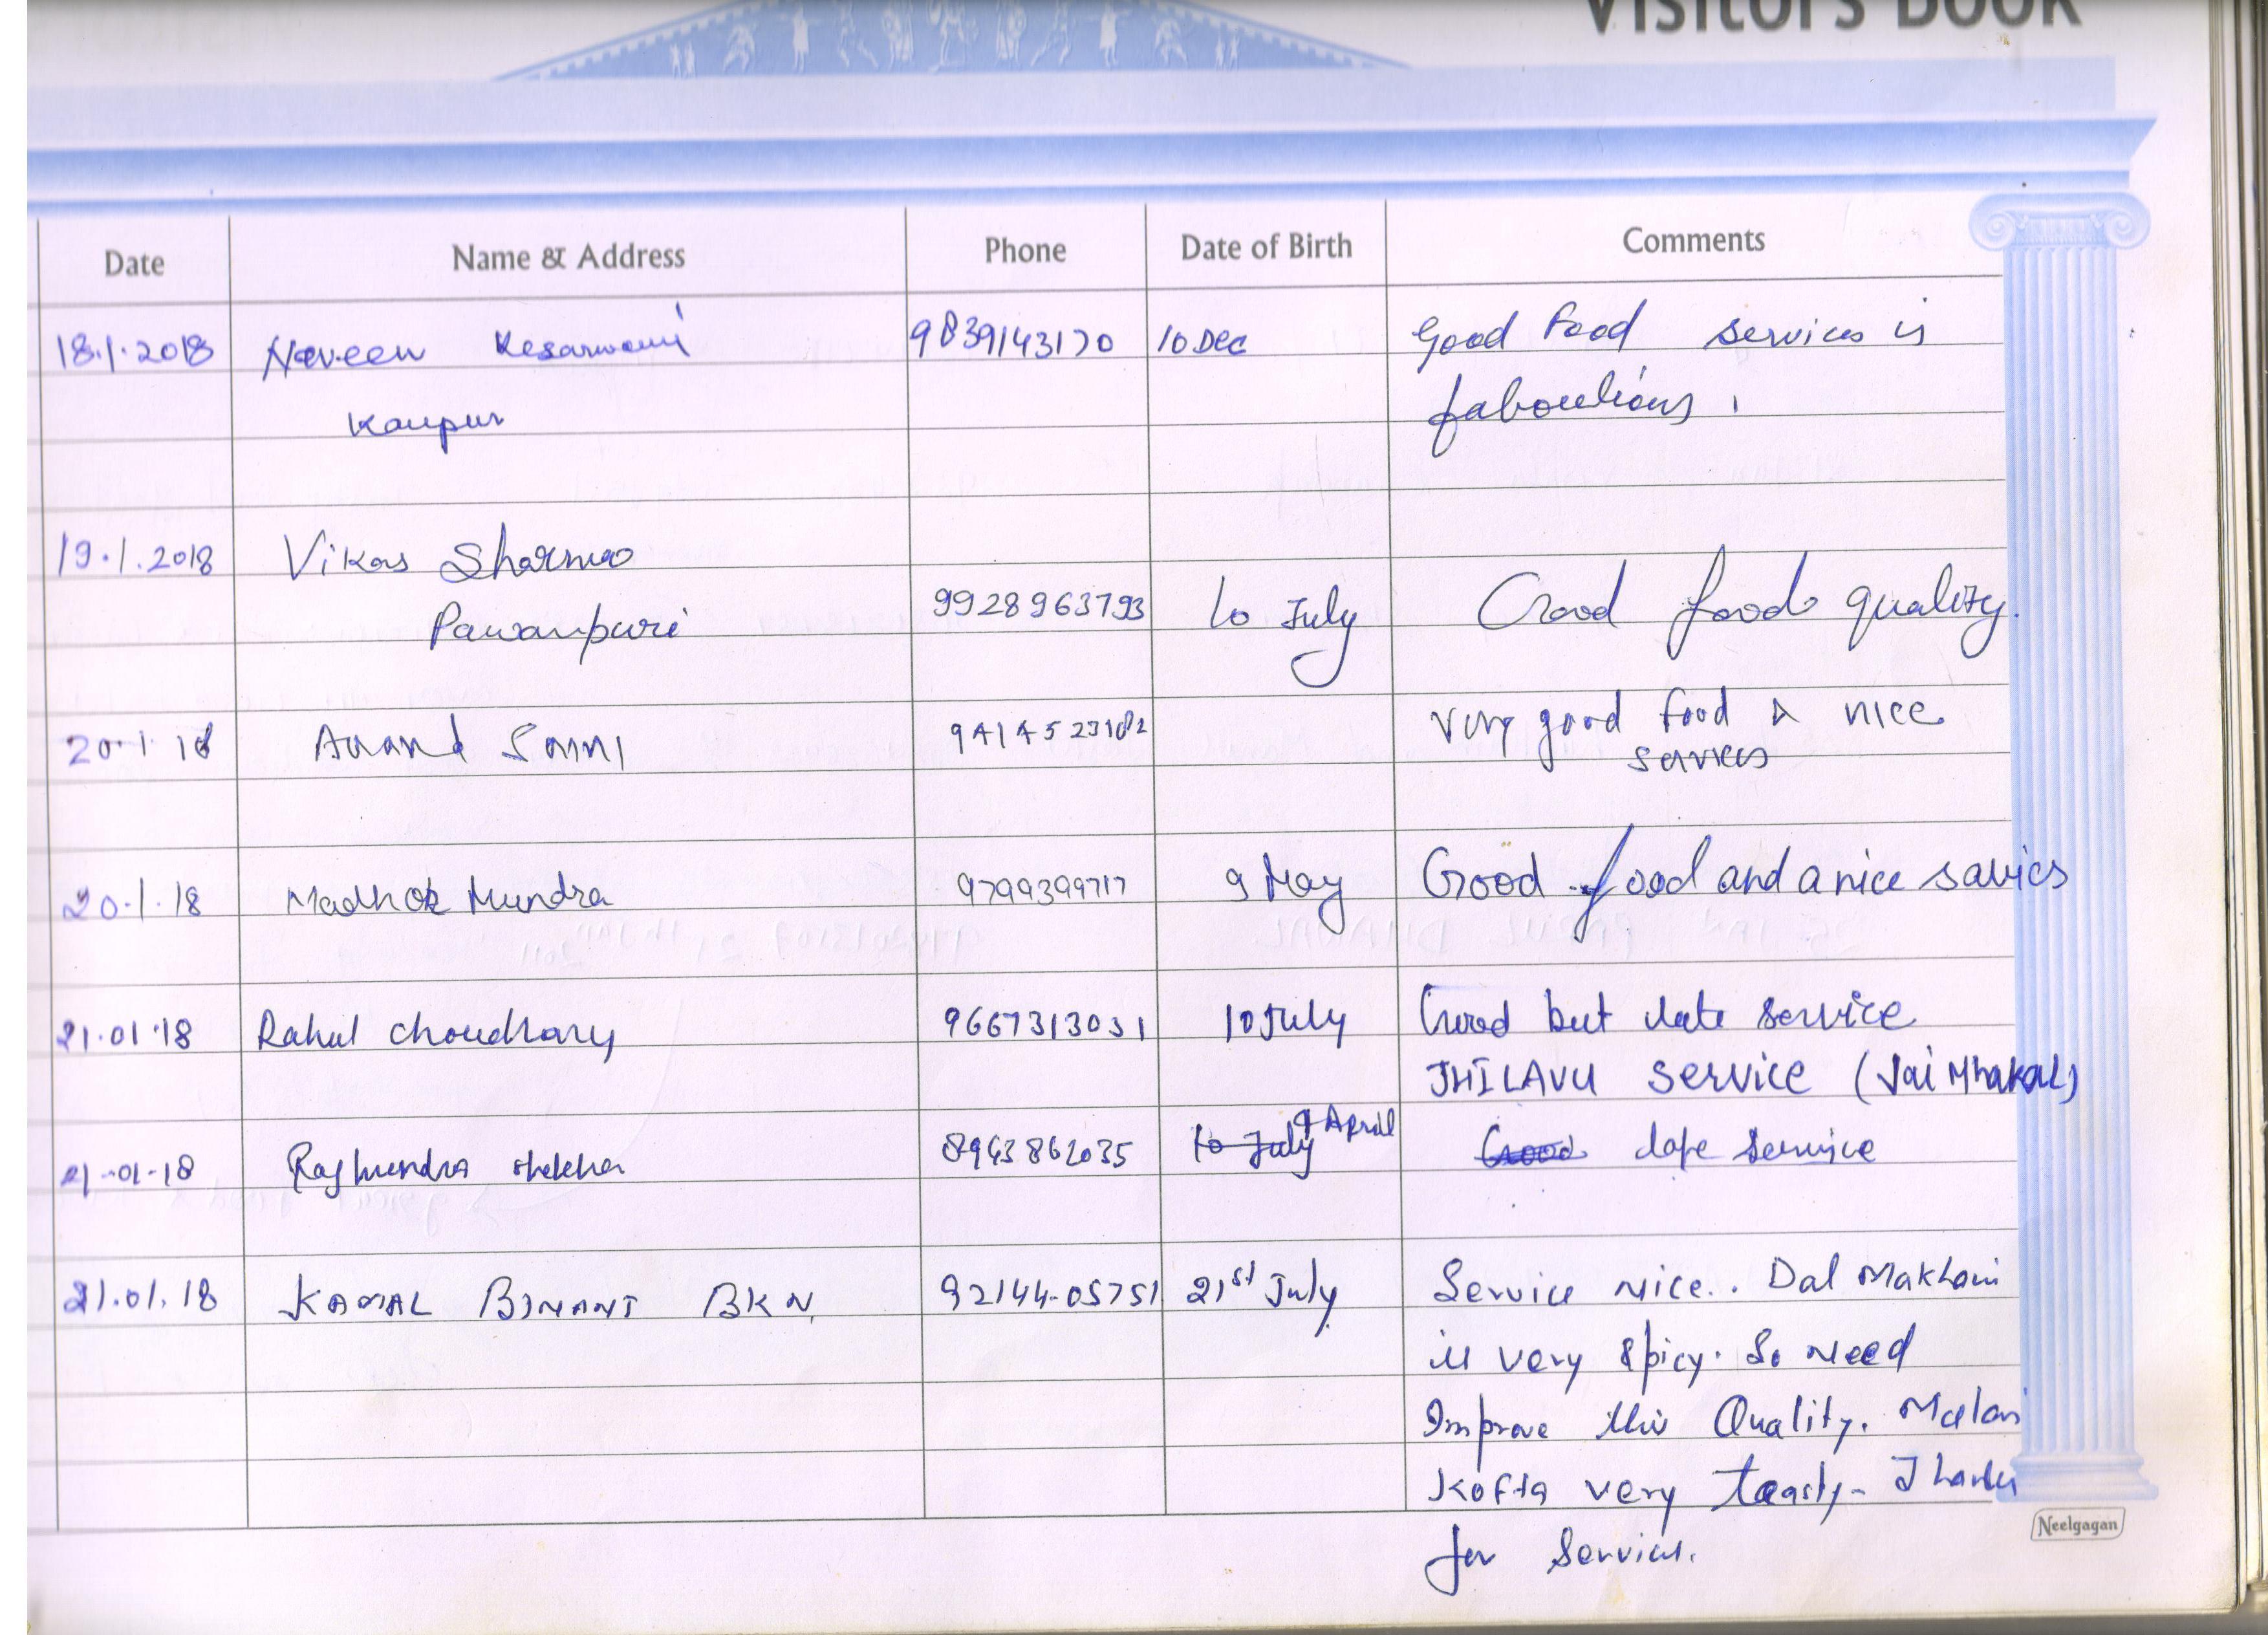 Visitor's Book
Date Name & Address Phone Date of Birth Comments
18.1.2018 Naveen Kesarwani 9839143170 10 Dec Good food services is
Kanpur faboulious.
19.1.2018 Vikas Sharma
Pawanpuri 9928963793 10 July Good food quality.
20.1.18 Anand Soni 9414523182 Very good food & nice
services
20.1.18 Mundra 9799399717 9 May Good food and a nice savics
21.01.18 Rahul choudhary 9667313031 10 July Good but late service
JHILAVU service (Jai Mhakal)
21-01-18 8943862035 10 July 9 April Good service
21.01.18 KAMAL BINANI BKN. 92144-05751 21st July Service nice.. Dal Makhani
is very spicy. So need
Improve this Quality. Malai
Kofta very Taasty- Thanks
for Services.
Neelgagan